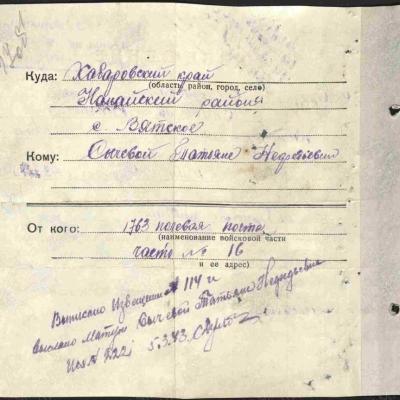 Куда: Хабаровский край
(область, район, город, село)
Нанайский район
с Вятское
Кому: Сычевой Татьяне
От кого: 1763 полевая почта
(наименование войсковой части
часть № 16
и ее адрес)
Выписано Извещение № 114 и
выслано Матери Сычевой Татьяне
5.3.43